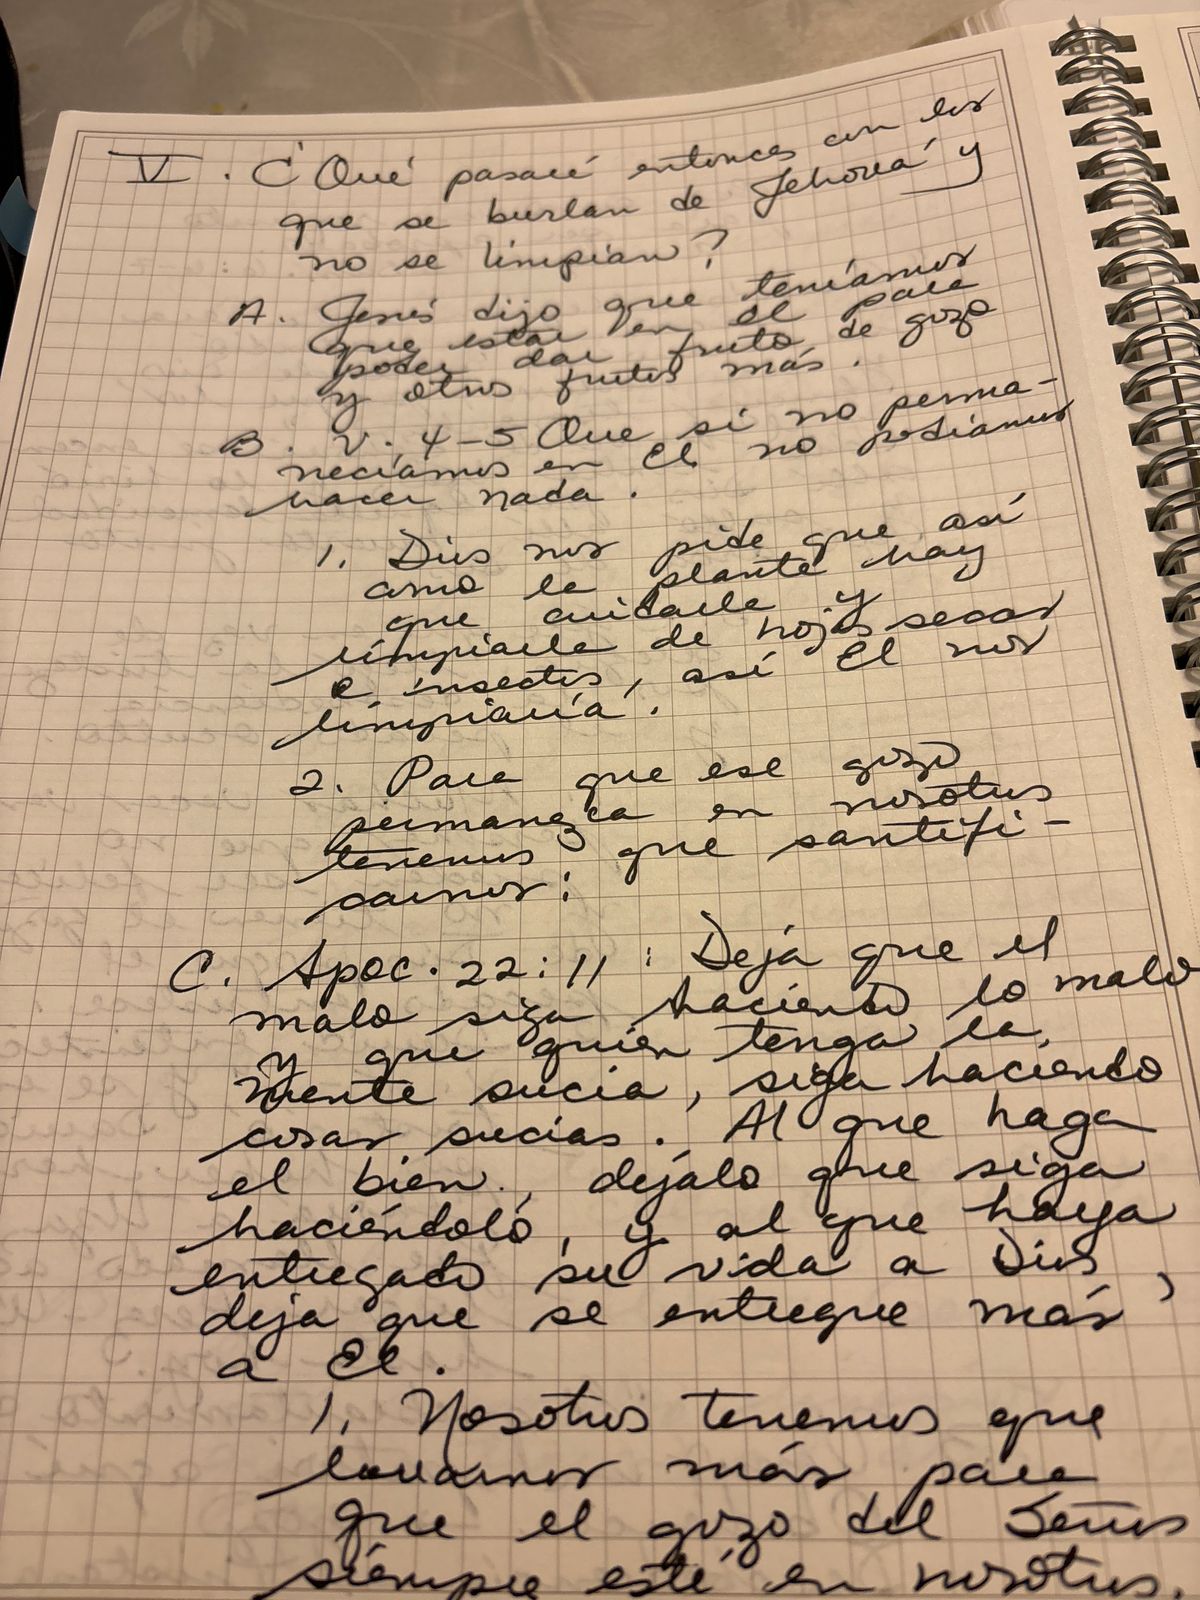 V. ¿Qué pasará entonces con los
que se burlan de Jehová y
no se limpian?
A. Jesús dijo que teníamos
que estar en El para
poder dar fruto de gozo
y otros frutos más.
B. V. 4-5 Que si no perma-
necíamos en El no podíamos
hacer nada.
1. Dios nos pide que así
como la planta hay
que cuidarla y
limpiarla de hojas secas
e insectos, así El nos
limpiaría.
2. Para que ese gozo
permanezca en nosotros
tenemos que santifi-
carnos:
C. Apoc. 22:11: Deja que el
malo siga haciendo lo malo
y que quién tenga la
mente sucia, siga haciendo
cosas sucias. Al que haga
el bien, déjalo que siga
haciéndolo, y al que haya
entregado su vida a Dios,
deja que se entregue más
a El.
1. Nosotros tenemos que
lavarnos más para
que el gozo del Señor
siempre esté en nosotros.